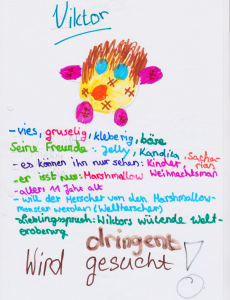 Viktor
-vies, gruselig, kleberig, böse
Seine Freunde: Jelly, Kandila, Sacha-
rias
-es können ihn nur sehen: Kinder,
-er isst nur: Marshmallow Weihnachtsman
-alter: 11 Jahr alt
-will der Herscher von den Marshmallow-
monster werden (Weltherscher)
-Lieblingsspruch: Wiktors wütende Welt-
eroberung
Wird dringent gesucht!